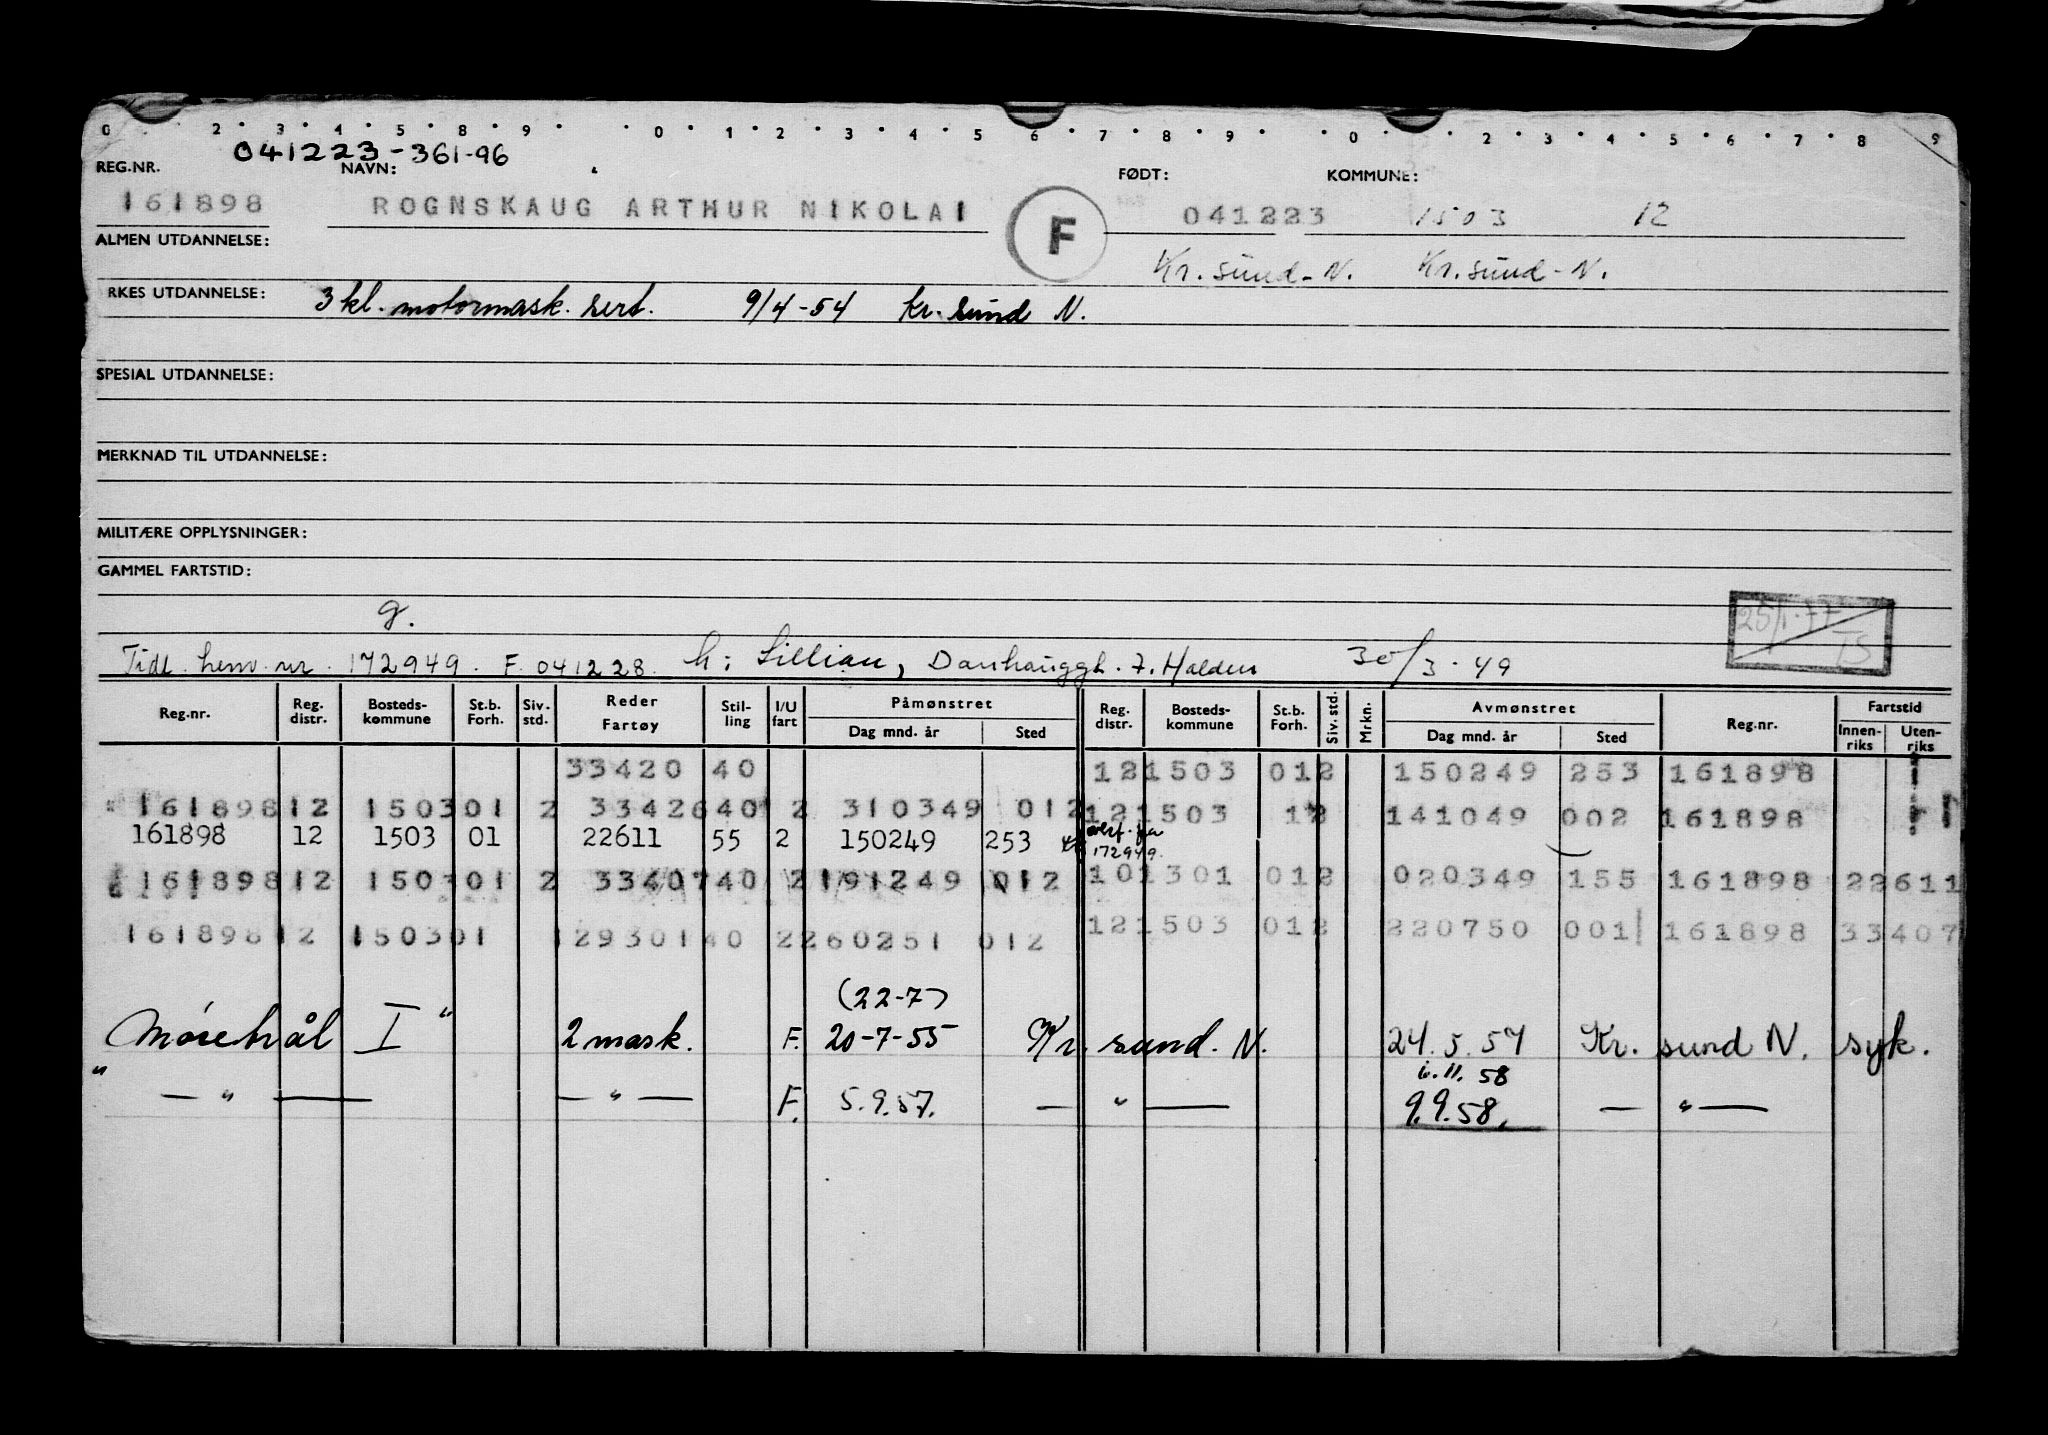 0 2 3 4 5 8 9 0 1 2 3 4 5 6 7 8 9 0 2 3 4 5 6 7 8 9
041223-361-96
REG.NR. NAVN: FØDT: KOMMUNE:
161898 ROGNSKAUG ARTHUR NIKOLAI F 041223 1503 12
ALMEN UTDANNELSE: Kr.sund-N. Kr.sund-N.
RKES UTDANNELSE: 3 kl. motormask. sert. 9/4-54 Kr. sund N.
SPESIAL UTDANNELSE:
MERKNAD TIL UTDANNELSE:
MILITÆRE OPPLYSNINGER:
GAMMEL FARTSTID:
g. 25/1-77 TS
Tidl. henv. nr. 172949. F. 041228. h: Lillian, Danhauggt. 7. Halden 30/3-49
Reg.nr. Reg. distr. Bosteds-kommune St.b. Forh. Siv. std. Reder Fartøy Stil-ling I/U fart Påmønstret Dag mnd. år Sted Reg. distr. Bosteds-kommune St.b. Forh. Siv. std. Mrkn. Avmønstret Dag mnd. år Sted Reg.nr. Fartstid Innen-riks Uten-riks
33420 40 12 1503 01 2 150249 253 161898
161898 12 1503 01 2 33426 40 2 310349 012 12 1503 1 2 141049 002 161898
161898 12 1503 01 22611 55 2 150249 253 overf. fra 172949.
161898 12 1503 01 2 33407 40 2 191249 012 10 1301 01 2 020349 155 161898 22611
161898 12 1503 01 129301 40 2 260251 012 12 1503 01 2 220750 001 161898 33407
(22-7)
"Møretrål I" 2 mask. F. 20-7-55 Kr. sund. N. 24.5.57 Kr. sund N. syk.
i. 11. 58
— " — — " — F. 5.9.57. — " — 9.9.58. — " —